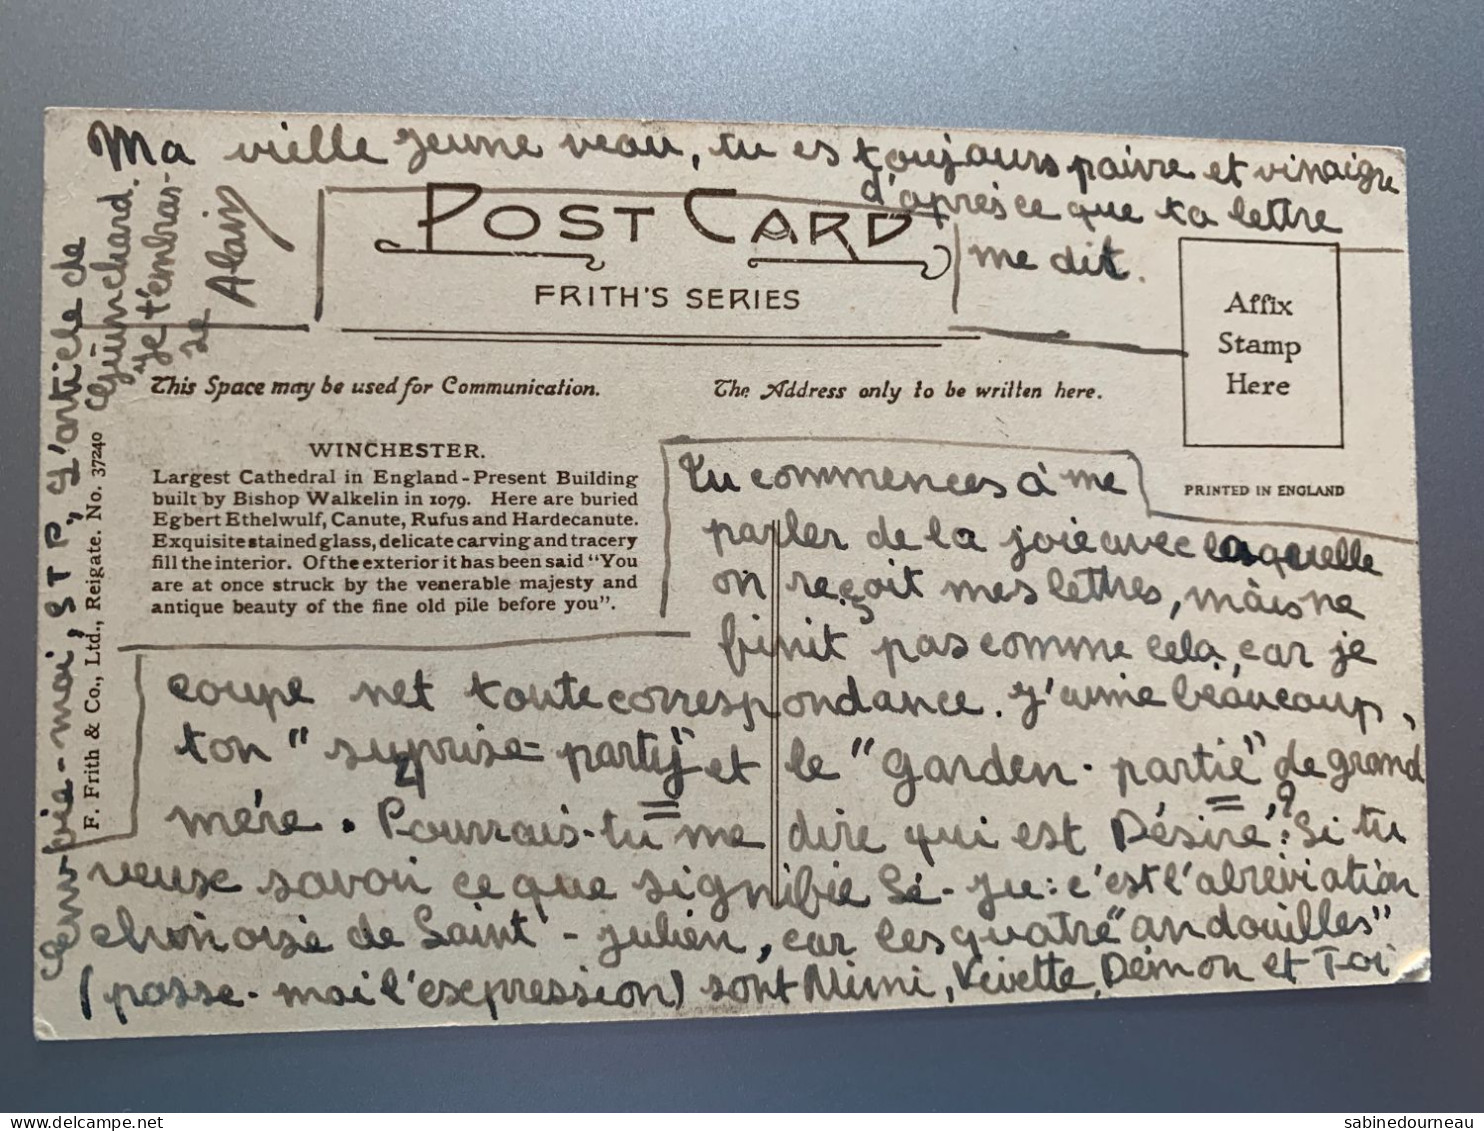 Ma vielle jeune veau, tu es toujours paivre et vinaigre
d'après ce que ta lettre
me dit.
POST CARD
FRITH'S SERIES
Affix
Stamp
Here
This Space may be used for Communication.
The Address only to be written here.
PRINTED IN ENGLAND
WINCHESTER.
Largest Cathedral in England-Present Building
built by Bishop Walkelin in 1079. Here are buried
Egbert Ethelwulf, Canute, Rufus and Hardecanute.
Exquisite stained glass, delicate carving and tracery
fill the interior. Of the exterior it has been said "You
are at once struck by the venerable majesty and
antique beauty of the fine old pile before you".
Tu commences à me
parler de la joie avec laquelle
on reçoit mes lettres, mais ne
finit pas comme cela, car je
coupe net toute correspondance. J'aime beaucoup,
ton "suprise-party" et le "Garden-partie" de grand
mère. Pourrais-tu me dire qui est Désiré? Si tu
veux savoir ce que signifie Sé-Ju: c'est l'abréviation
chinoise de Saint-Julien, car les quatre "andouilles"
(passe-moi l'expression) sont Mimi, Vevette, Démon et Toi
Cenvoie-moi, S T P, L'article de
Guinchard.
Je t'embras-
se
Alain
F. Frith & Co., Ltd., Reigate. No. 37240
sabinedourneau
www.delcampe.net